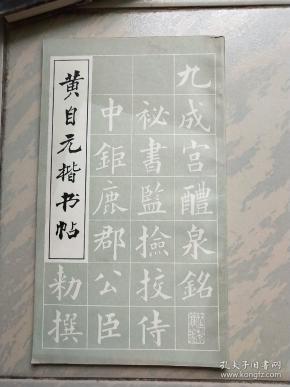 黄自元楷书帖
九成宫醴泉銘
秘書監撿挍侍
中鉅鹿郡公臣
勅撰
孔夫子旧书网